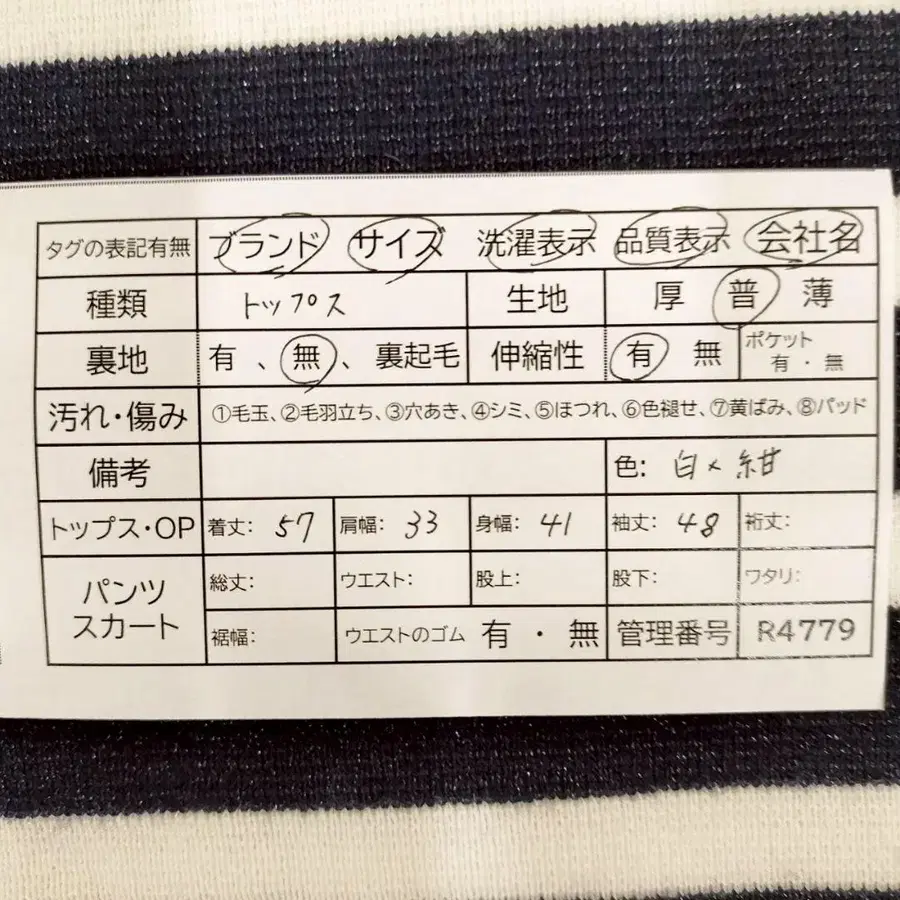 タグの表記有無 ブランド サイズ 洗濯表示 品質表示 会社名
種類 トップス 生地 厚 普 薄
裏地 有 、無、裏起毛 伸縮性 有 無 ポケット 有・無
汚れ・傷み ①毛玉、②毛羽立ち、③穴あき、④シミ、⑤ほつれ、⑥色褪せ、⑦黄ばみ、⑧パッド
備考 色: 白×紺
トップス・OP 着丈: 57 肩幅: 33 身幅: 41 袖丈: 48 裄丈:
パンツ スカート 総丈: ウエスト: 股上: 股下: ワタリ:
裾幅: ウエストのゴム 有・無 管理番号 R4779